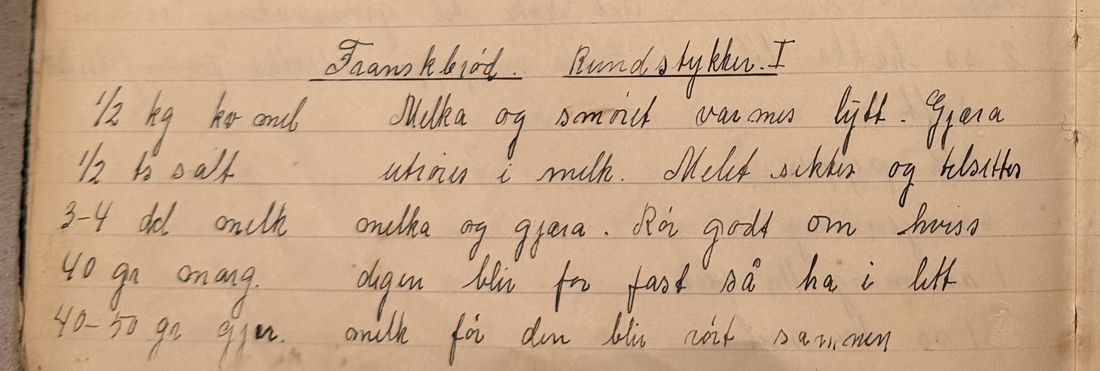 Franskbrød. Rundstykker. I
1/2 kg hv mel Melka og smøret varmes lytt. Gjæra
1/2 ts salt utrøres i melk. Melet siktes og telsettes
3-4 dl melk melka og gjæra. Rør godt om hviss
40 gr marg. deigen blir for fast så ha i litt
40-50 gr gjær. melk før den blir rørt sammen